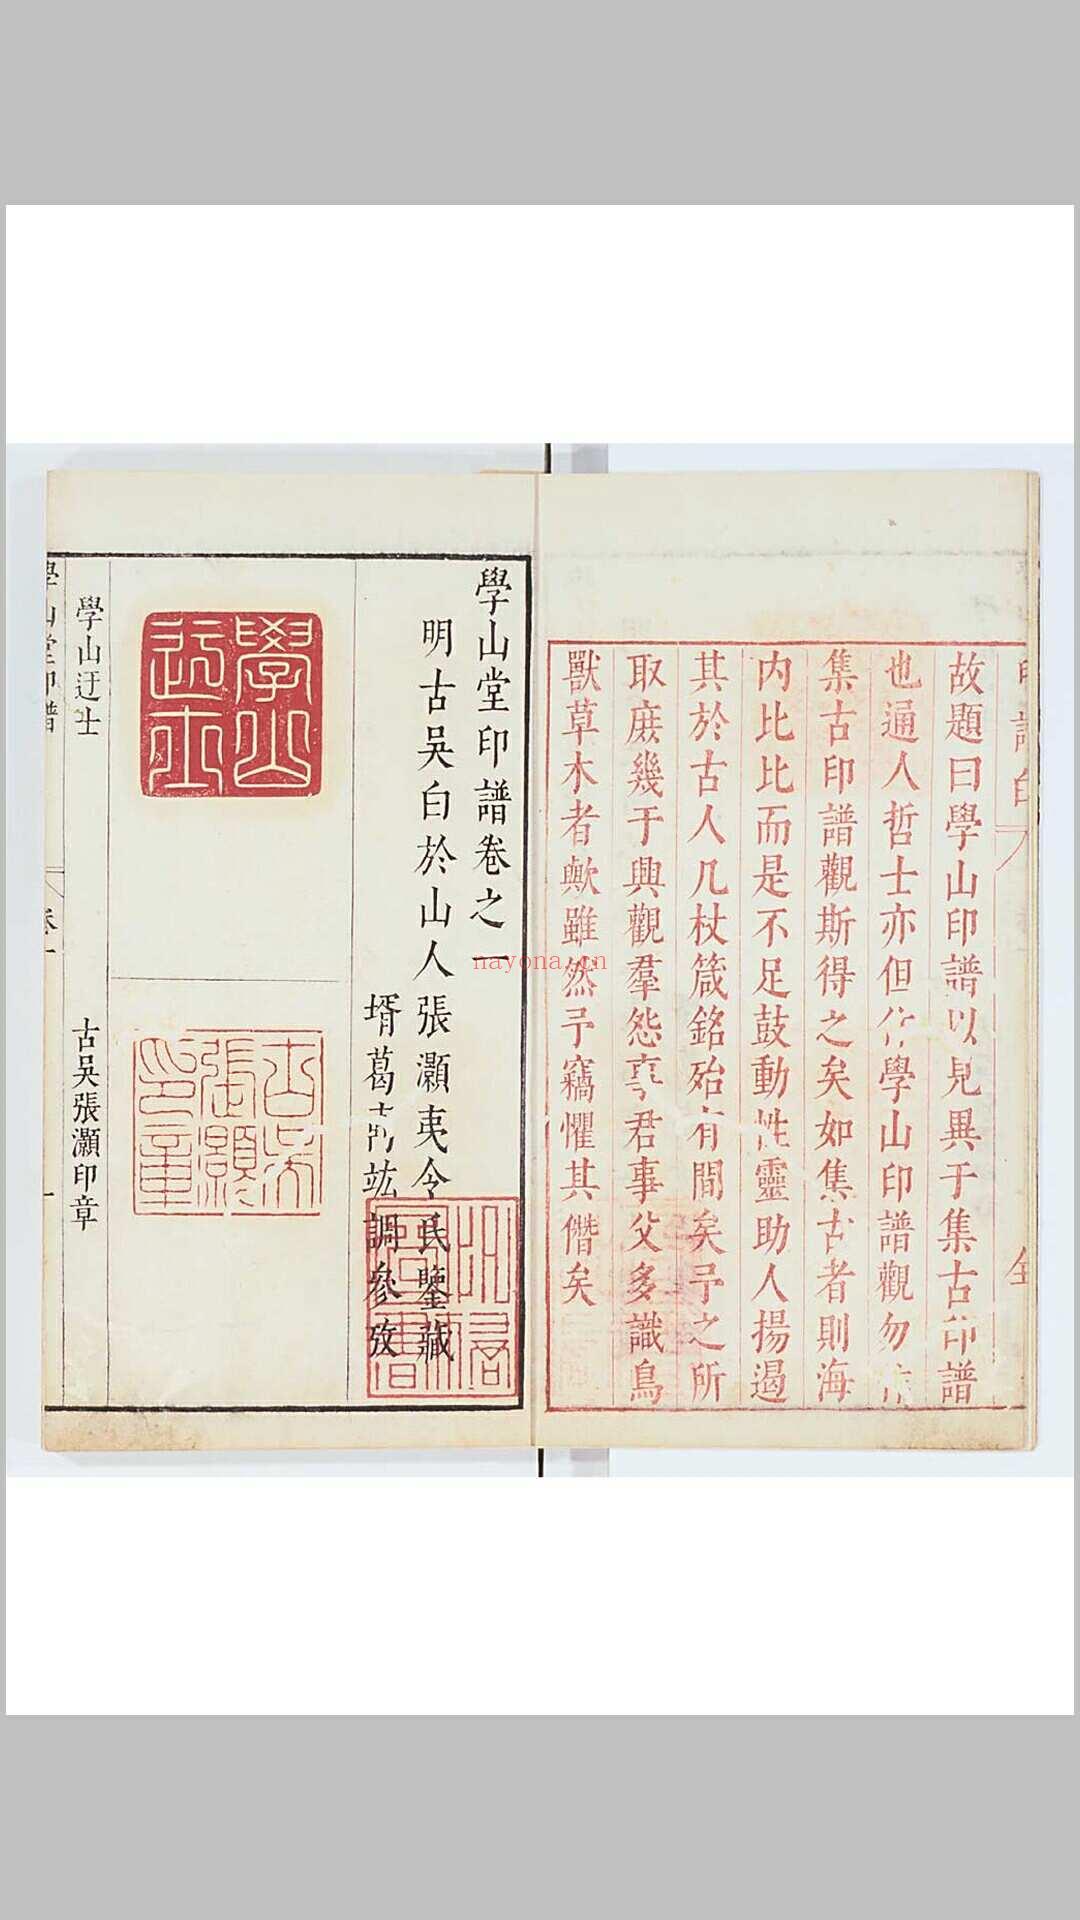 故題曰學山印譜以見異于集古印譜
也通人哲士亦但作學山印譜觀勿作
集古印譜觀斯得之矣如集古者則海
内比比而是不足鼓動性靈助人揚遏
其於古人几杖箴銘殆有間矣予之所
取庶幾于興觀羣怨事君事父多識鳥
獸草木者歟雖然予竊懼其僭矣
學山堂印譜卷之一
明古吳白於山人張灝夷令氏鑒藏
壻葛竑調參攷
學山迂士
古吳張灝印章
學山迂士
古吳張灝印章
學山堂印譜
卷一
一
nayona.cn